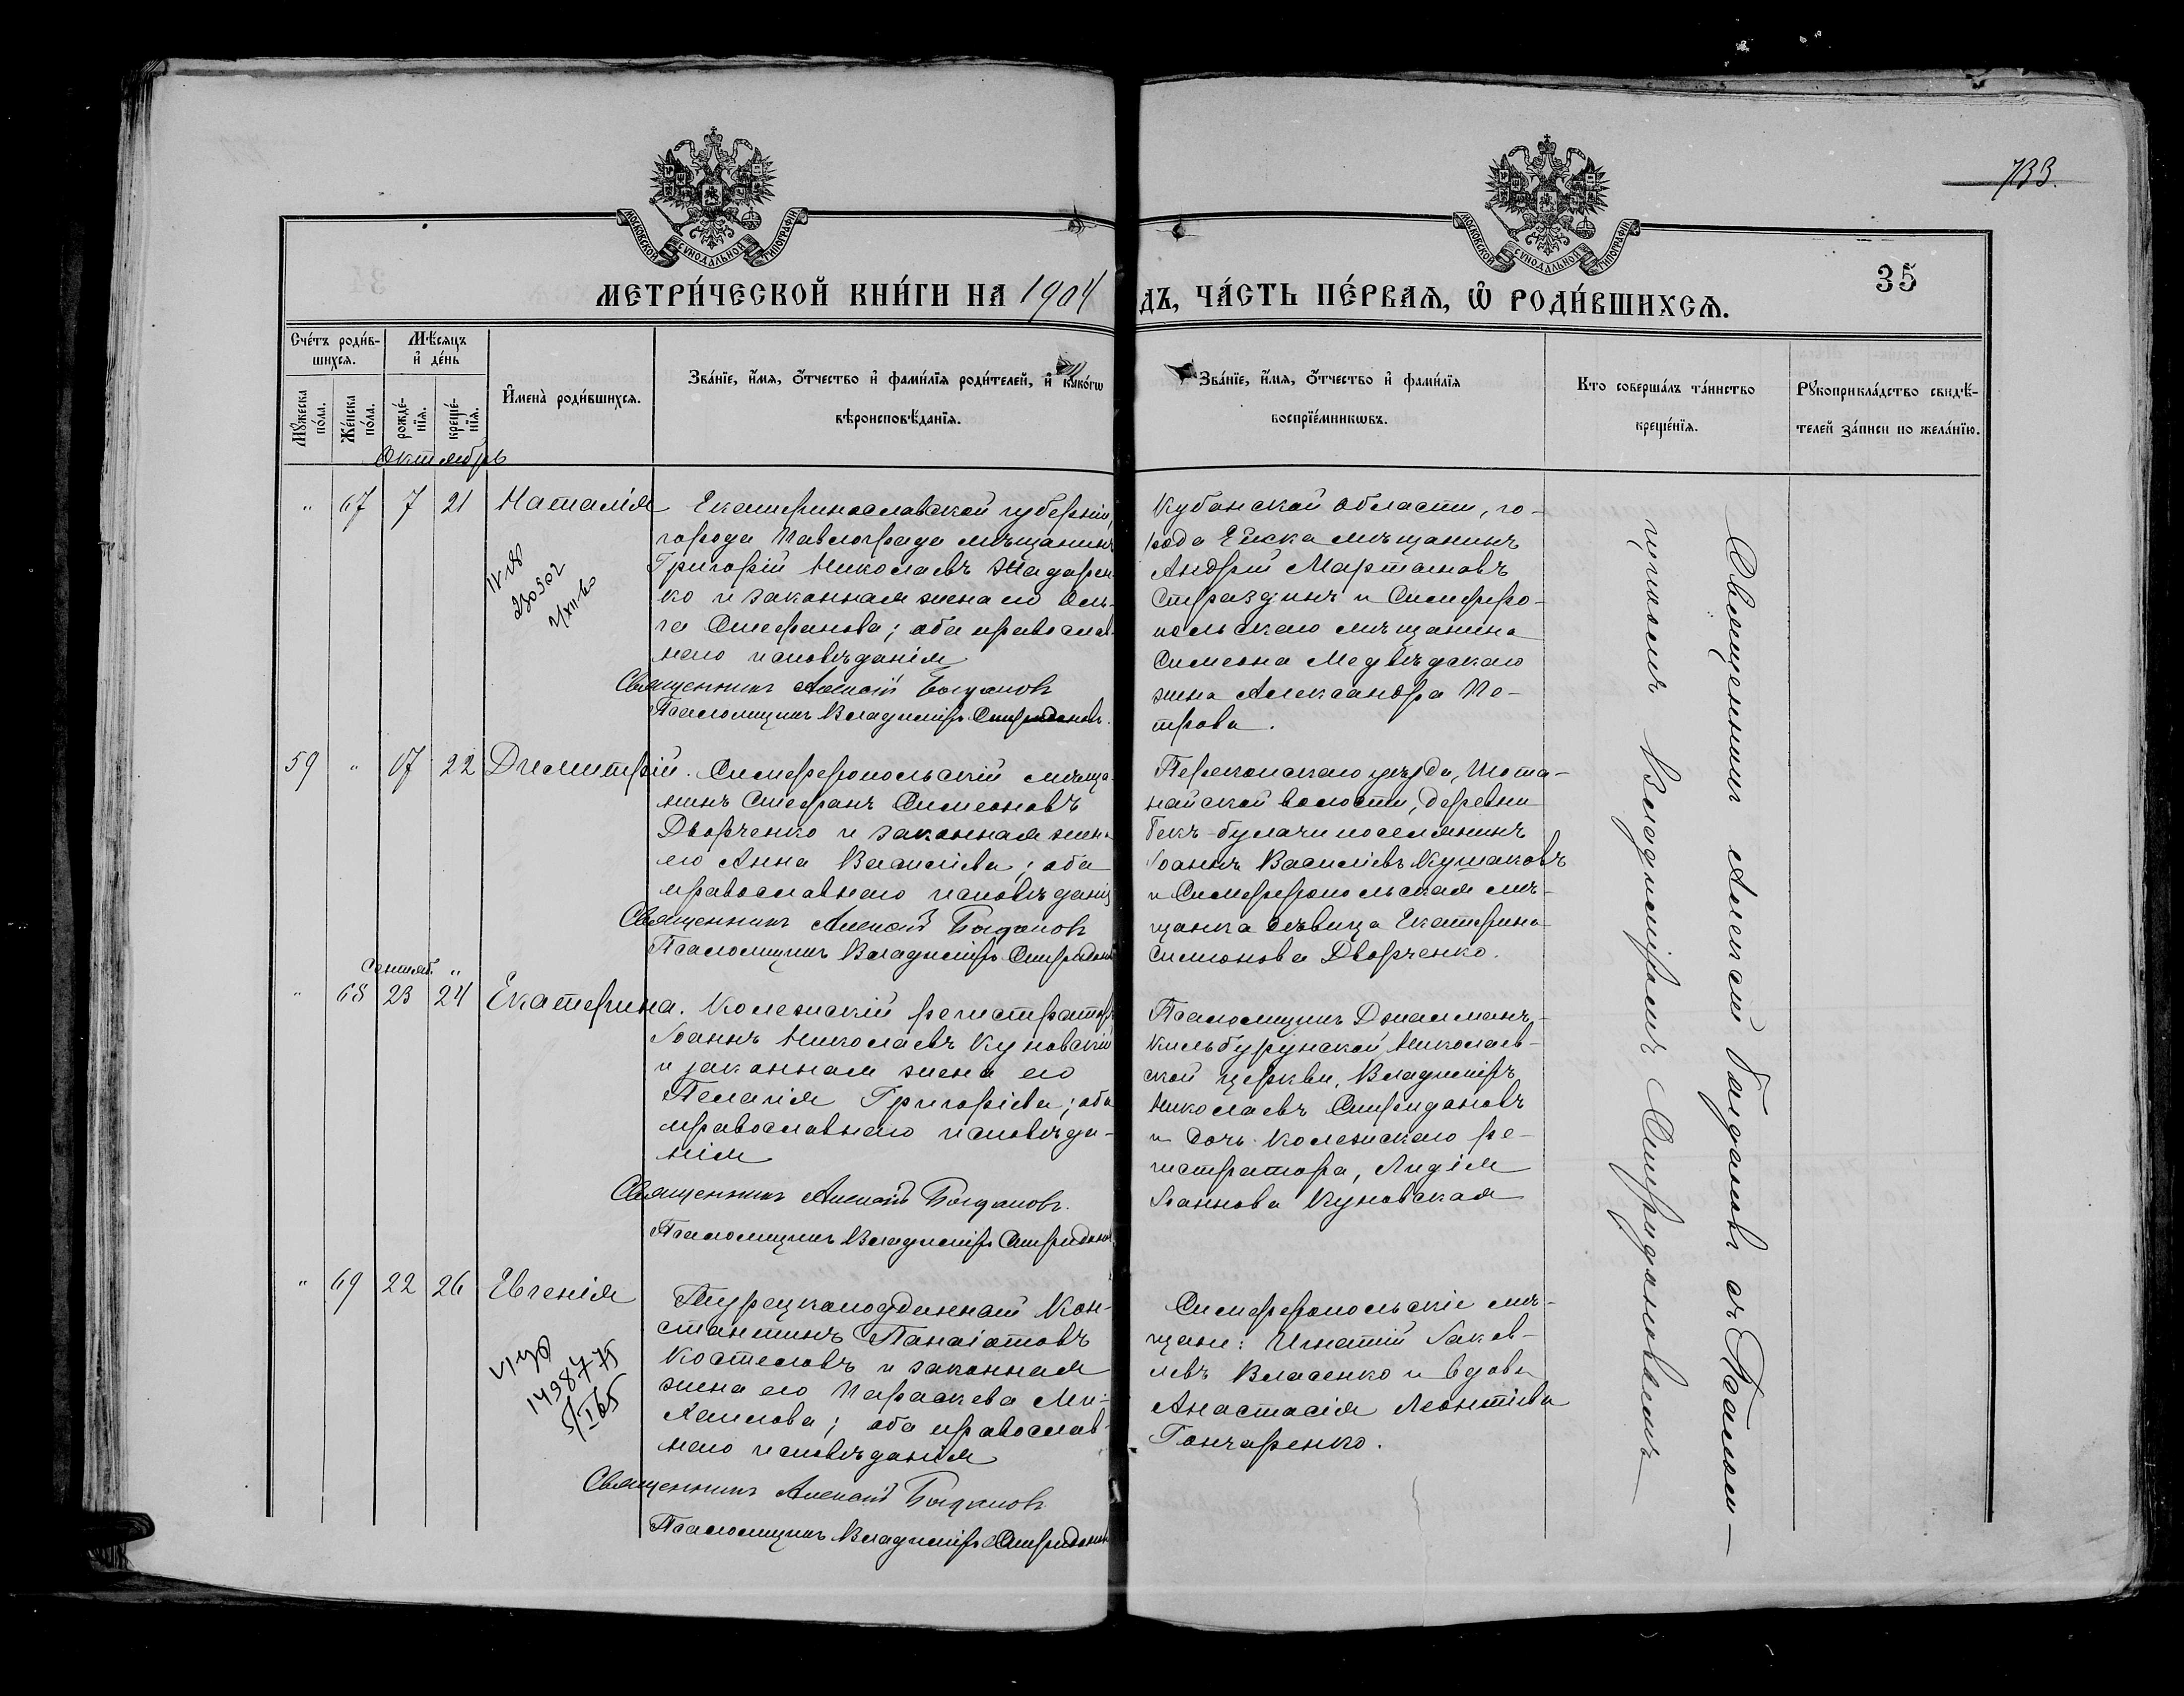 733.
35
МОСКОВСКОЙ СѴНОДАЛЬНОЙ ТИПОГРАФІИ
МОСКОВСКОЙ СѴНОДАЛЬНОЙ ТИПОГРАФІИ
МЕТРИ́ЧЕСКОЙ КНИ́ГИ НА 1904
ДЪ, ЧА́СТЬ ПЕ́РВАѦ, Ѿ РОДИ́ВШИХСѦ.
Сче́тъ роди́в-
шихсѧ.
Мѣ́сѧцъ
и де́нь
Мꙋ́жеска
по́ла.
Же́нска
по́ла.
рожде́-
нїѧ.
креще́-
нїѧ.
Имена̀ роди́вшихсѧ.
Зва́нїе, и́мѧ, ѻ́тчество и фами́лїѧ роди́телей, и како́гѡ
вѣроисповѣ́данїѧ.
Зва́нїе, и́мѧ, ѻ́тчество и фами́лїѧ
воспрїе́мникѡвъ.
Кто соверша́лъ та́инство
креще́нїѧ.
Рꙋкоприкла́дство свидѣ́-
телей за́писи по жела́нїю.
Октябрь
" 67 7 21 Наталія
Екатеринославской губерніи,
города Павлограда мѣщанинъ
Григорій Николаевъ
ко и законная жена его Оль-
га Стефанова; оба православ-
наго исповѣданія
Священникъ Алексій Богдановъ
Псаломщикъ Владиміръ Спиридоновъ.
Кубанской области, го-
рода Ейска мѣщанинъ
Андрей Мартыновъ
Страздинъ и Симферо-
польскаго мѣщанина
Симеона Медвѣдскаго
жена Александра Пе-
трова.
59 " 17 22 Димитрій.
Симферопольскій мѣща-
нинъ Стефанъ Симеоновъ
Дворченко и законная жена
его Анна Василіева; оба
православнаго исповѣданія
Священникъ Алексій Богдановъ
Псаломщикъ Владиміръ Спиридоновъ
Перекопскаго уѣзда,
найской волости, деревни
Бекъ-булачи поселянинъ
Іоаннъ Василіевъ Кушаковъ
и Симферопольская мѣ-
щанка дѣвица Екатерина
Симеонова Дворченко.
Сентяб. "
" 68 23 24 Екатерина.
Колежскій регистраторъ
Іоаннъ Николаевъ Куновскій
и законная жена его
Пелагія Григоріева; оба
православнаго исповѣда-
нія
Священникъ Алексій Богдановъ.
Псаломщикъ Владиміръ Спиридоновъ.
Псаломщикъ Джалманъ-
Кильбурунской Николаев-
ской церкви, Владиміръ
Николаевъ Спиридоновъ
и дочь Колежскаго ре-
гистратора, Лидія
Іоаннова Куновская
" 69 22 26 Евгенія
Турецкоподданный Кон-
стантинъ Панаіотовъ
Костеловъ и законная
жена его Параскева Ми-
хаилова; оба православ-
наго исповѣданія
Священникъ Алексій Богдановъ
Псаломщикъ Владиміръ Спиридоновъ
Симферопольскіе мѣ-
щане: Игнатій Іаков-
левъ Власенко и вдова
Анастасія Леонтіева
Гончаренко.
Священникъ Алексій Богдановъ съ Псалом-
щикомъ Владиміромъ Спиридоновымъ